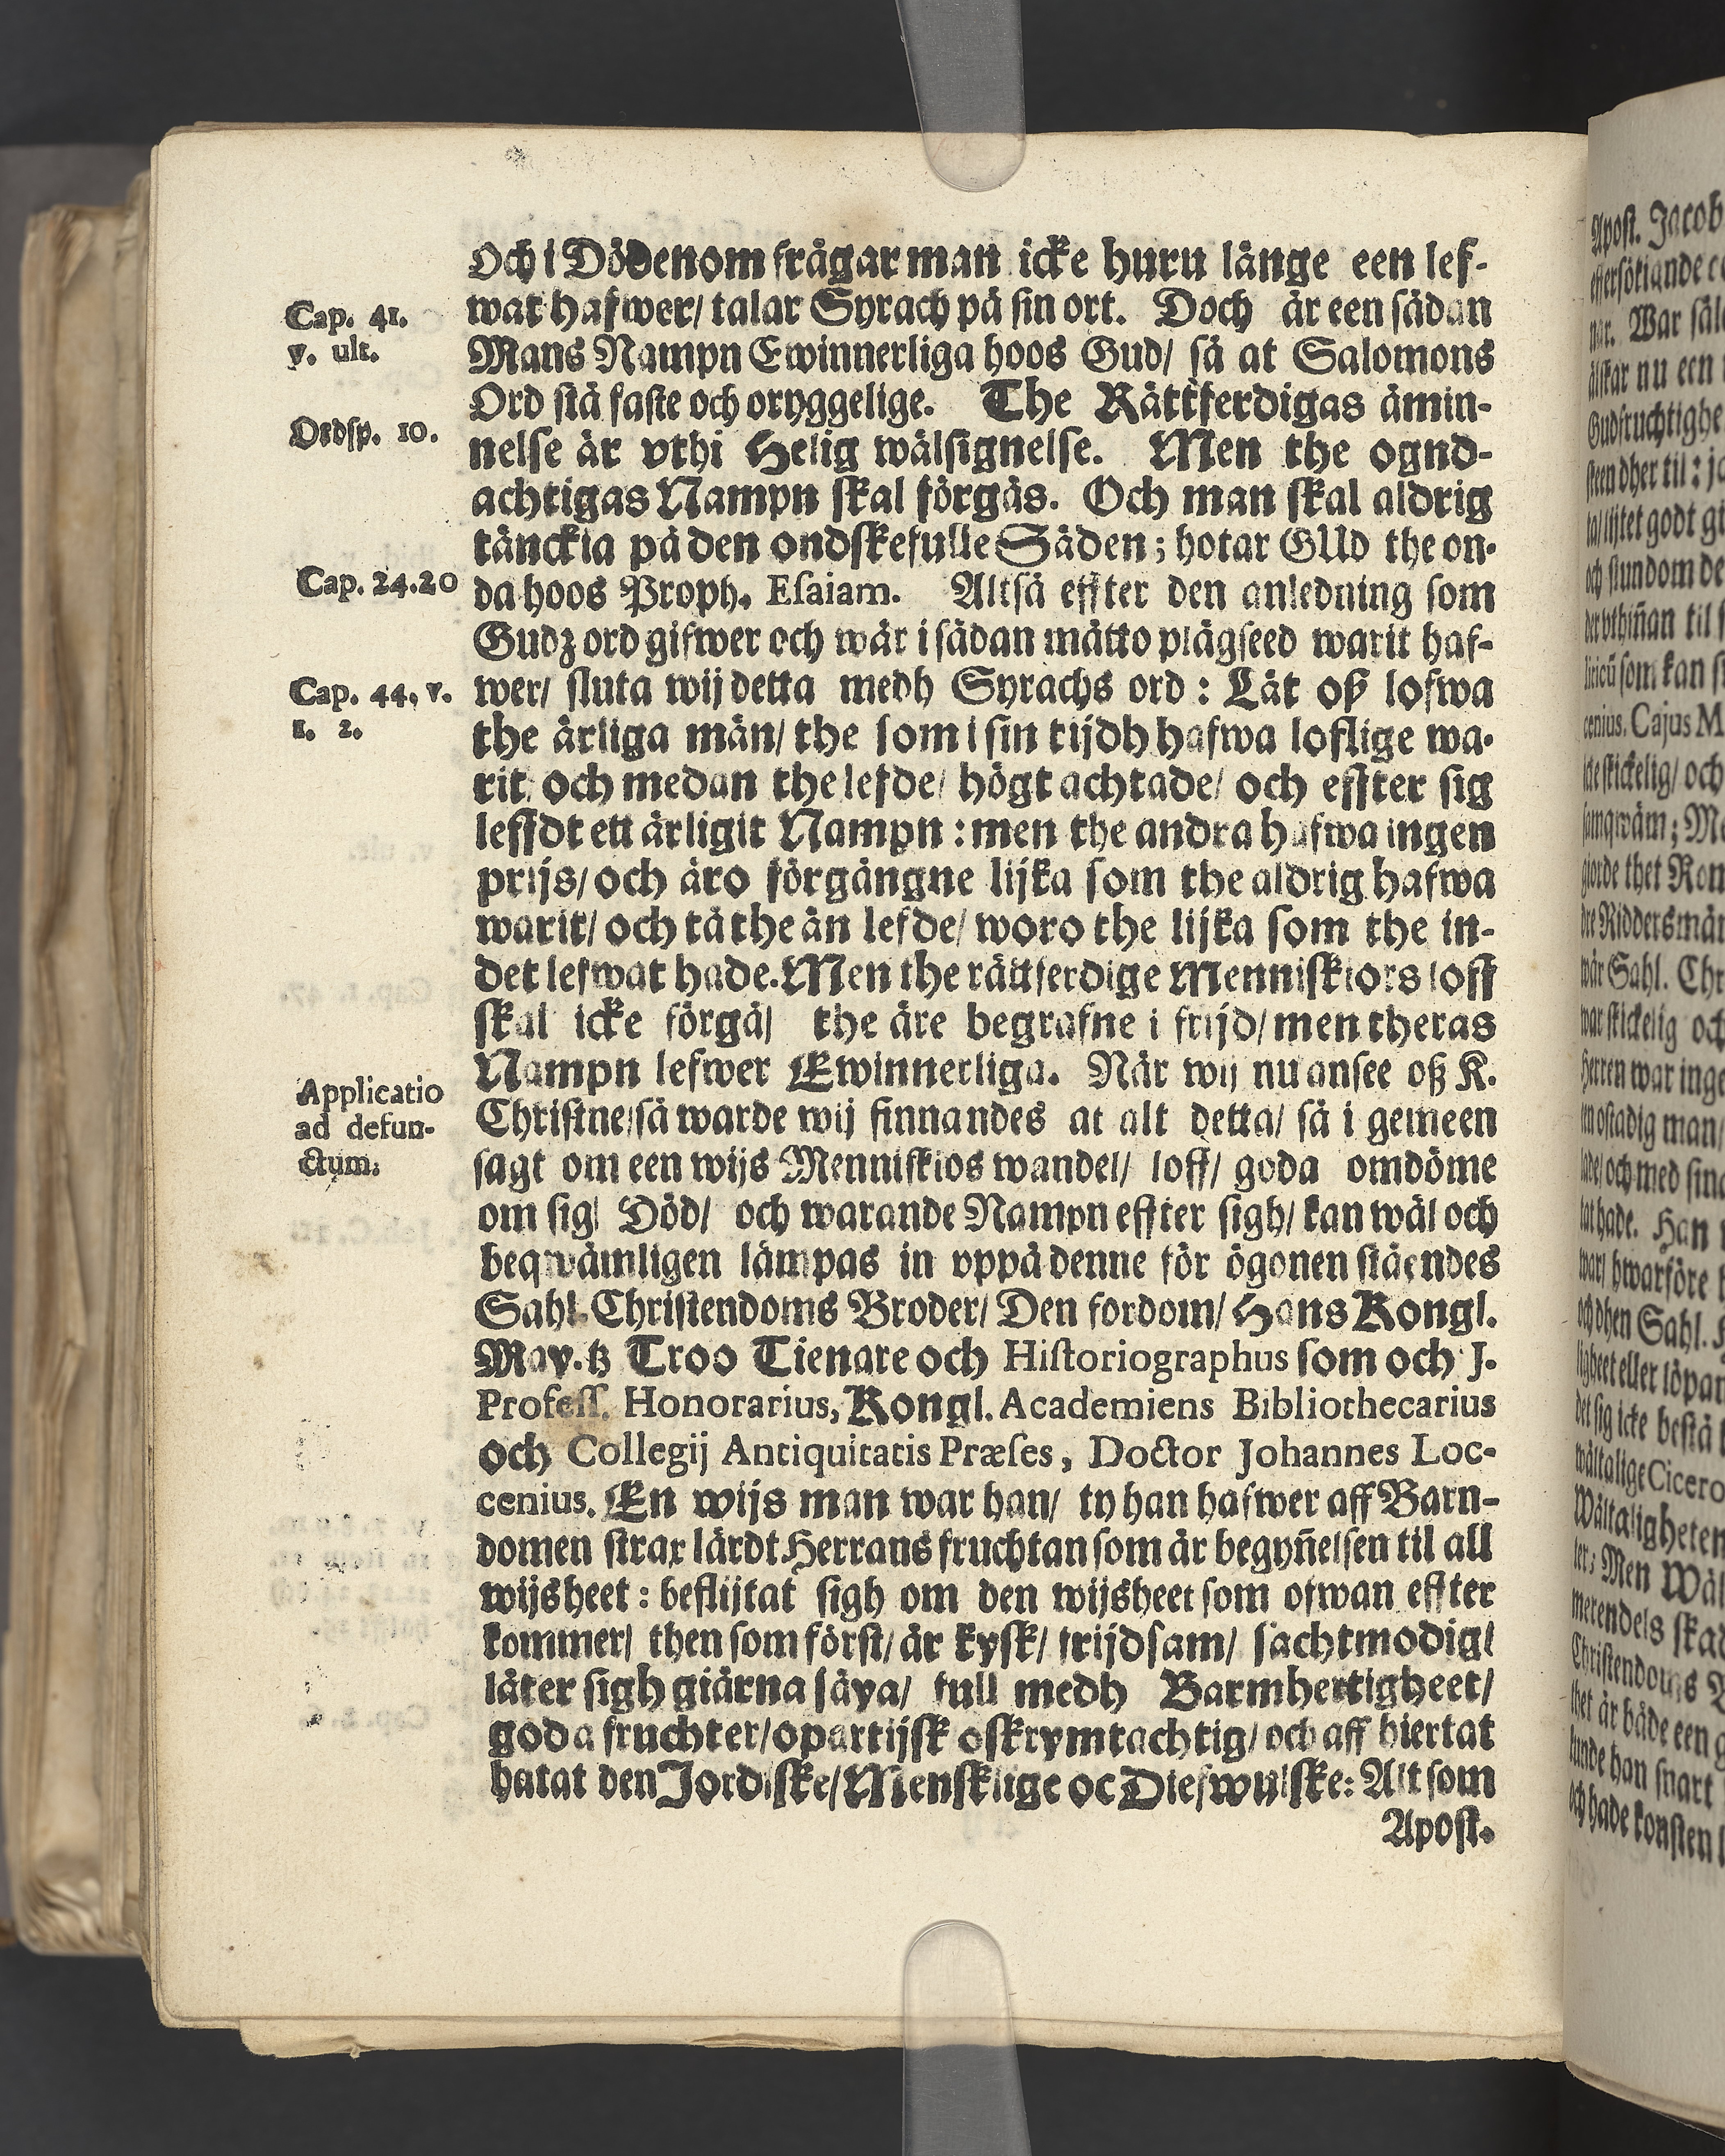 Och i Dödenom frågar man icke huru länge een lef-
wat hafwer/ talar Syrach på sin ort. Doch är een sådan
Mans Nampn Ewinnerliga hoos Gud/ så at Salomons
Ord stå faste och oryggelige. The Rättferdigas åmin-
nelse är vthi Helig wälsignelse. Men the ogud-
achtigas Nampn skal förgås. Och man skal aldrig
tänckia på den ondskefulle Säden; hotar GUd the on-
da hoos Proph. Esaiam. Altså effter den anledning som
Gudz ord gifwer och wår i sådan måtto plägseed warit haf-
wer/ sluta wij detta medh Syrachs ord: Låt oß lofwa
the ärliga män/ the som i sin tijdh hafwa loflige wa-
rit/ och medan the lefde/ högt achtade/ och effter sig
leffdt ett ärligit Nampn: men the andra hafwa ingen
prijs/ och äro förgångne lijka som the aldrig hafwa
warit/ och tå the än lefde/ woro the lijka som the in-
det lefwat hade. Men the rättferdige Menniskiors loff
skal icke förgå/ the äre begrafne i frijd/ men theras
Nampn lefwer Ewinnerliga. När wij nu ansee oß K.
Christne/ så warde wij finnandes at alt detta/ så i gemeen
sagt om een wijs Menniskios wandel/ loff/ goda omdöme
om sig/ Död/ och warande Nampn effter sigh/ kan wäl och
beqwämligen lämpas in vppå denne för ögonen ståendes
Sahl. Christendoms Broder/ Den fordom/ Hans Kongl.
May.tz Troo Tienare och Historiographus som och J.
Profess. Honorarius, Kongl. Academiens Bibliothecarius
och Collegij Antiquitatis Præses, Doctor Johannes Loc-
cenius. En wijs man war han/ ty han hafwer aff Barn-
domen strax lärdt Herrans fruchtan som är begyñelsen til all
wijsheet: beflijtat sigh om den wijsheet som ofwan effter
kommer/ then som först/ är kysk/ frijdsam/ sachtmodig/
låter sigh giärna säya/ full medh Barmhertigheet/
goda fruchter/ opartijsk oskrymtachtig/ och aff hiertat
hatat den Jordiske/ Mensklige oc Diefwulske: Alt som
Apost.
Cap. 41.
v. ult.
Ordsp. 10.
Cap. 24.20
Cap. 44. v.
1. 2.
Applicatio
ad defun-
ctum.